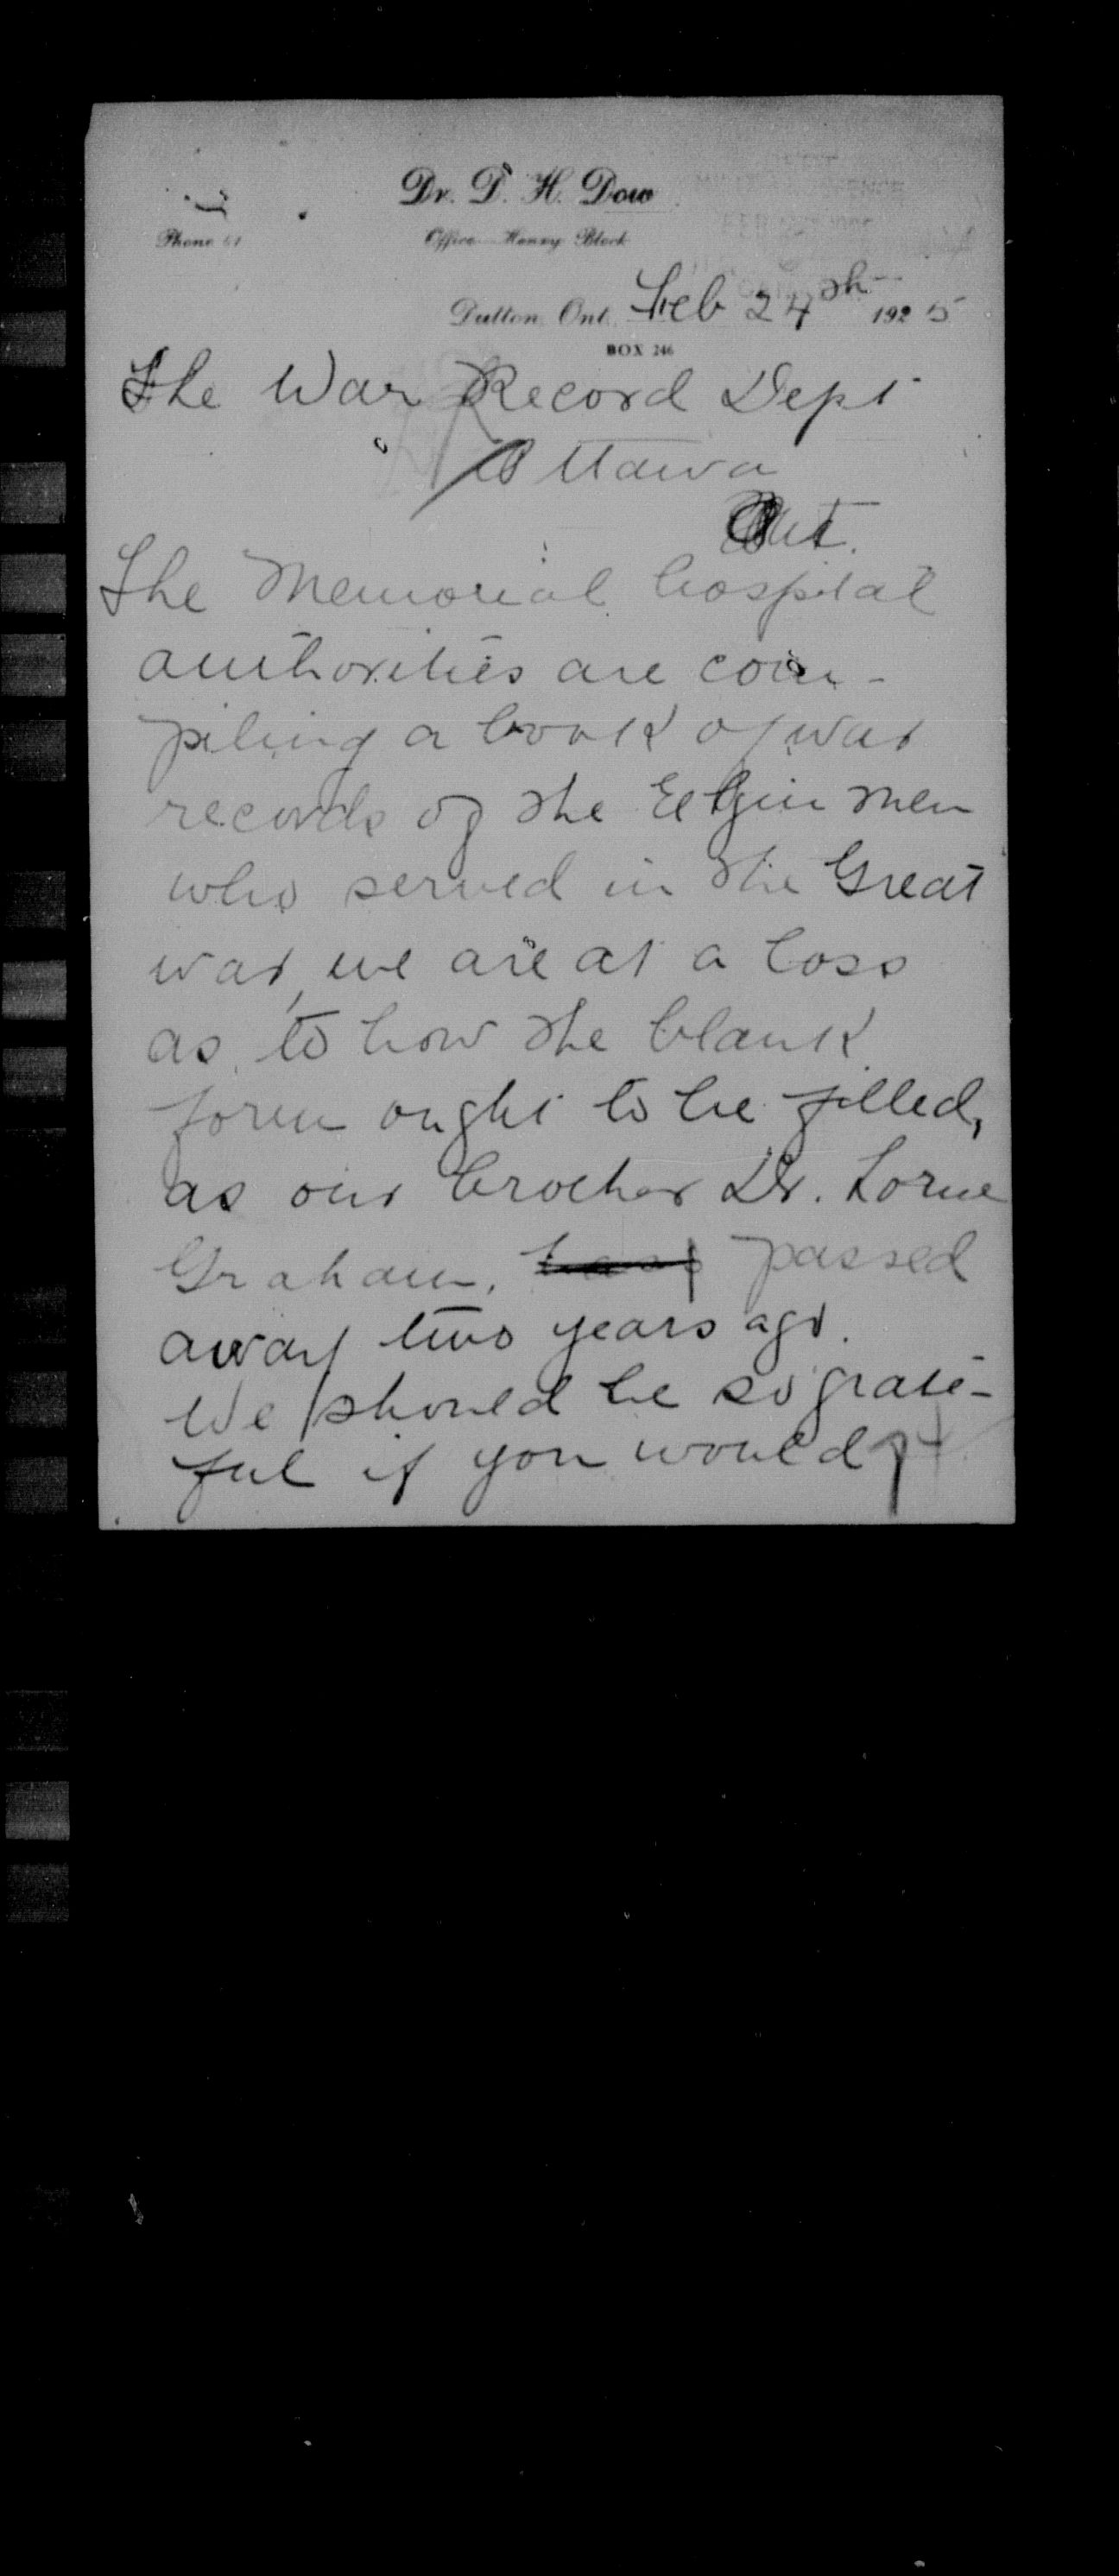 Dr. D. H. Dow
Phone 61
Office Henry Block
Dutton, Ont. Feb 24th 1925
BOX 246
The War Record Dept
Ottawa
Ont.
The Memorial hospital
authorities are com-
piling a book of war
records of the Elgin men
who served in the Great
war, we are at a loss
as to how the blank
form ought to be filled,
as our brother Dr. Lorne
Graham, passed
away two years ago.
We should be so grate-
ful if you would